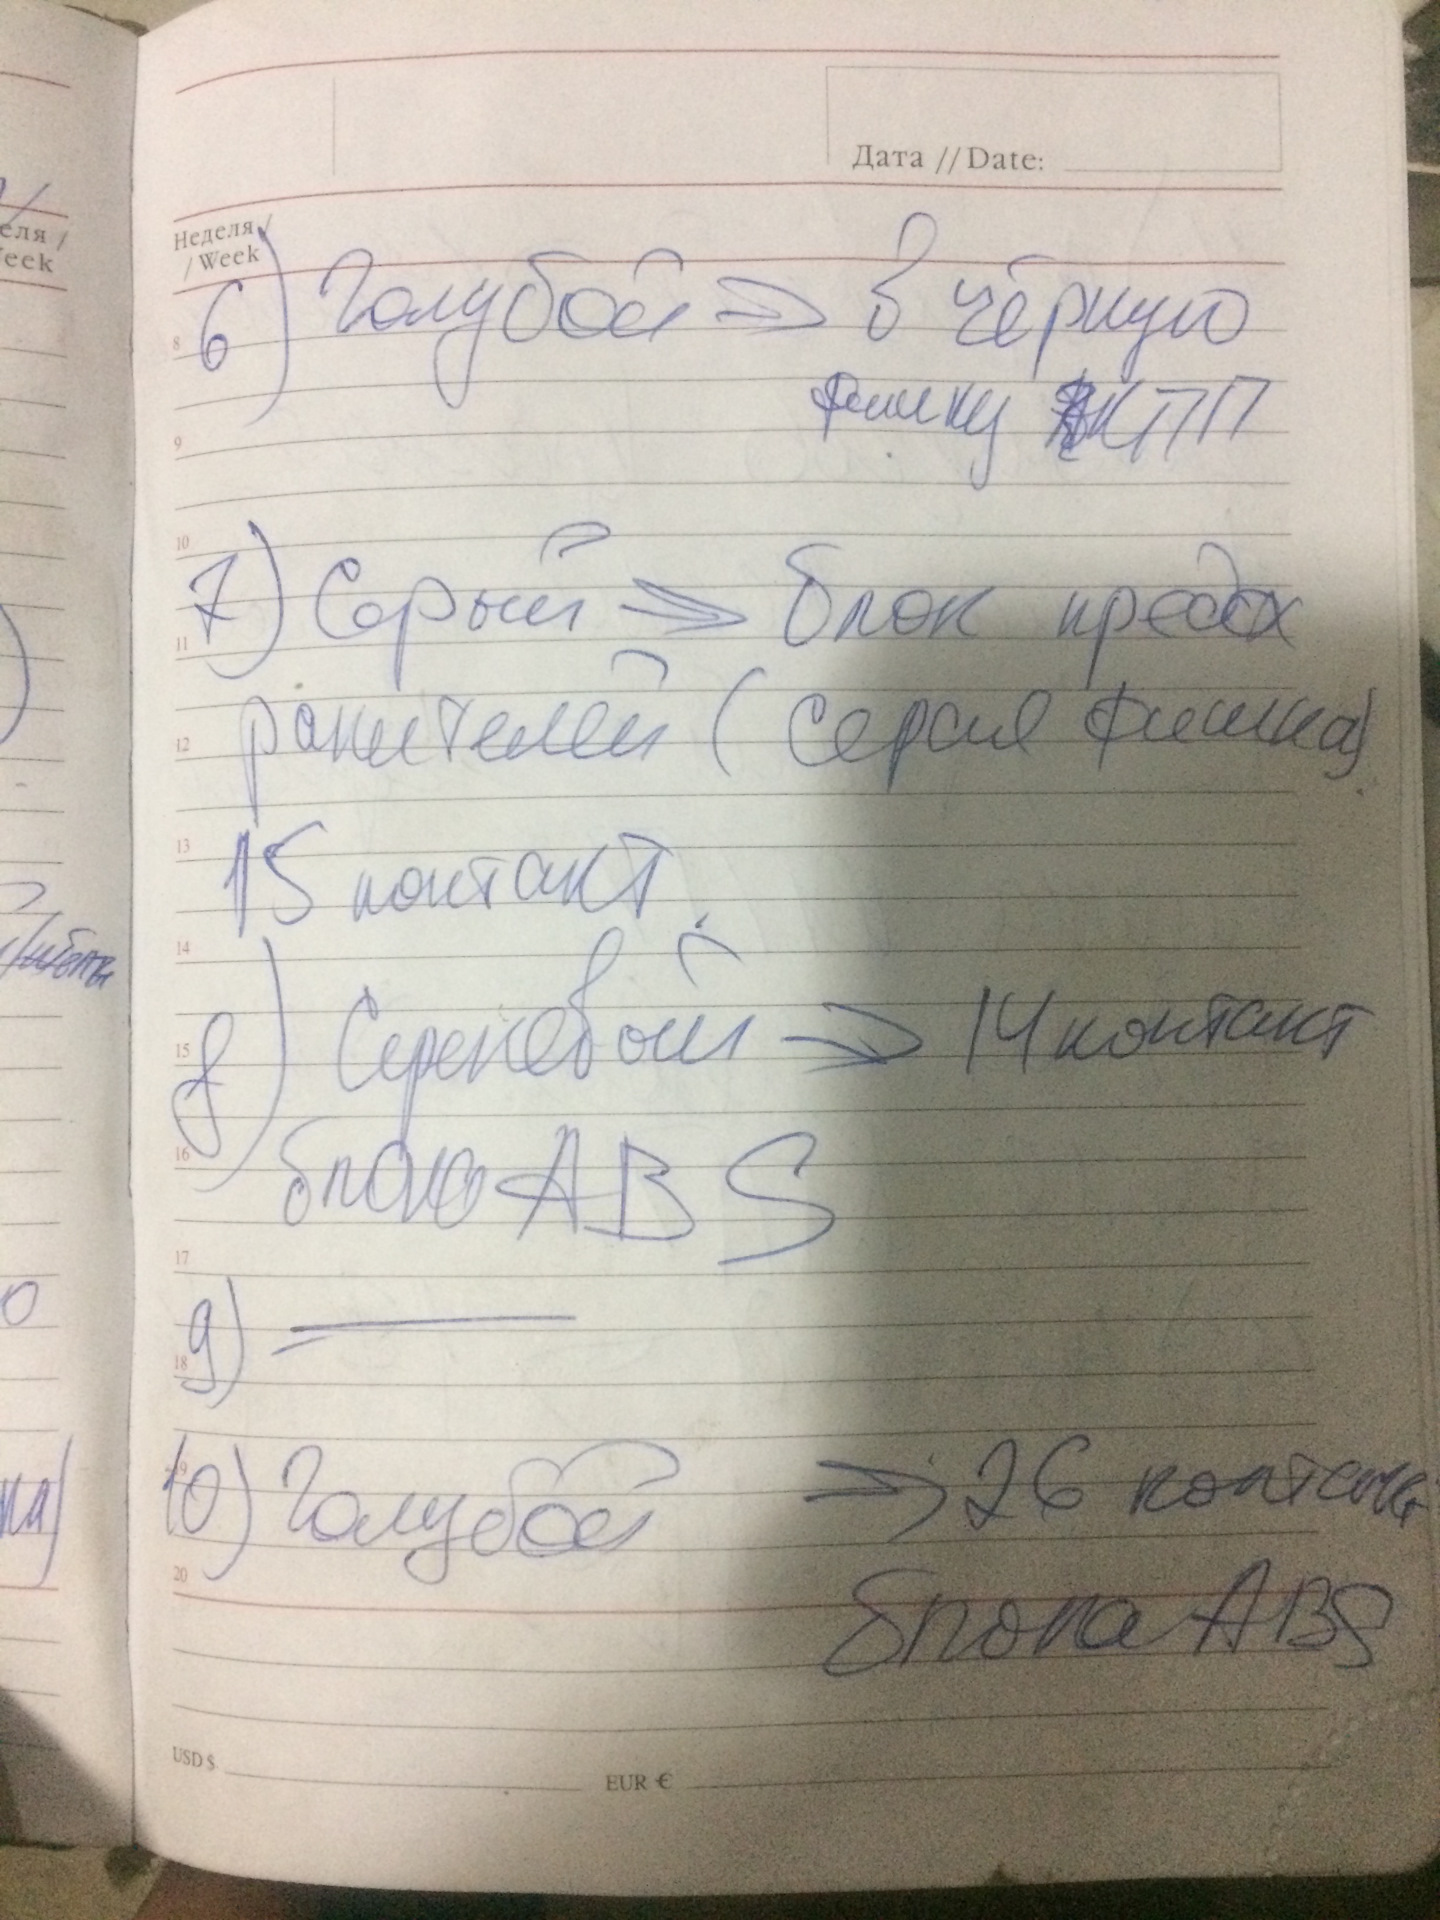 Дата // Date:
Неделя /
/ Week
еля /
Week
6) Голубой → в чёрную
8
фишку КПП
9
10
7) Серый → блок предох
11
ранителей (серая фишка)
12
13
15 контакт
14
8) Сереневый → 14 контакт
15
16
блока ABS
17
9) —
18
19
10) Голубой → 26 контакт
20
блока ABS
USD $
EUR €